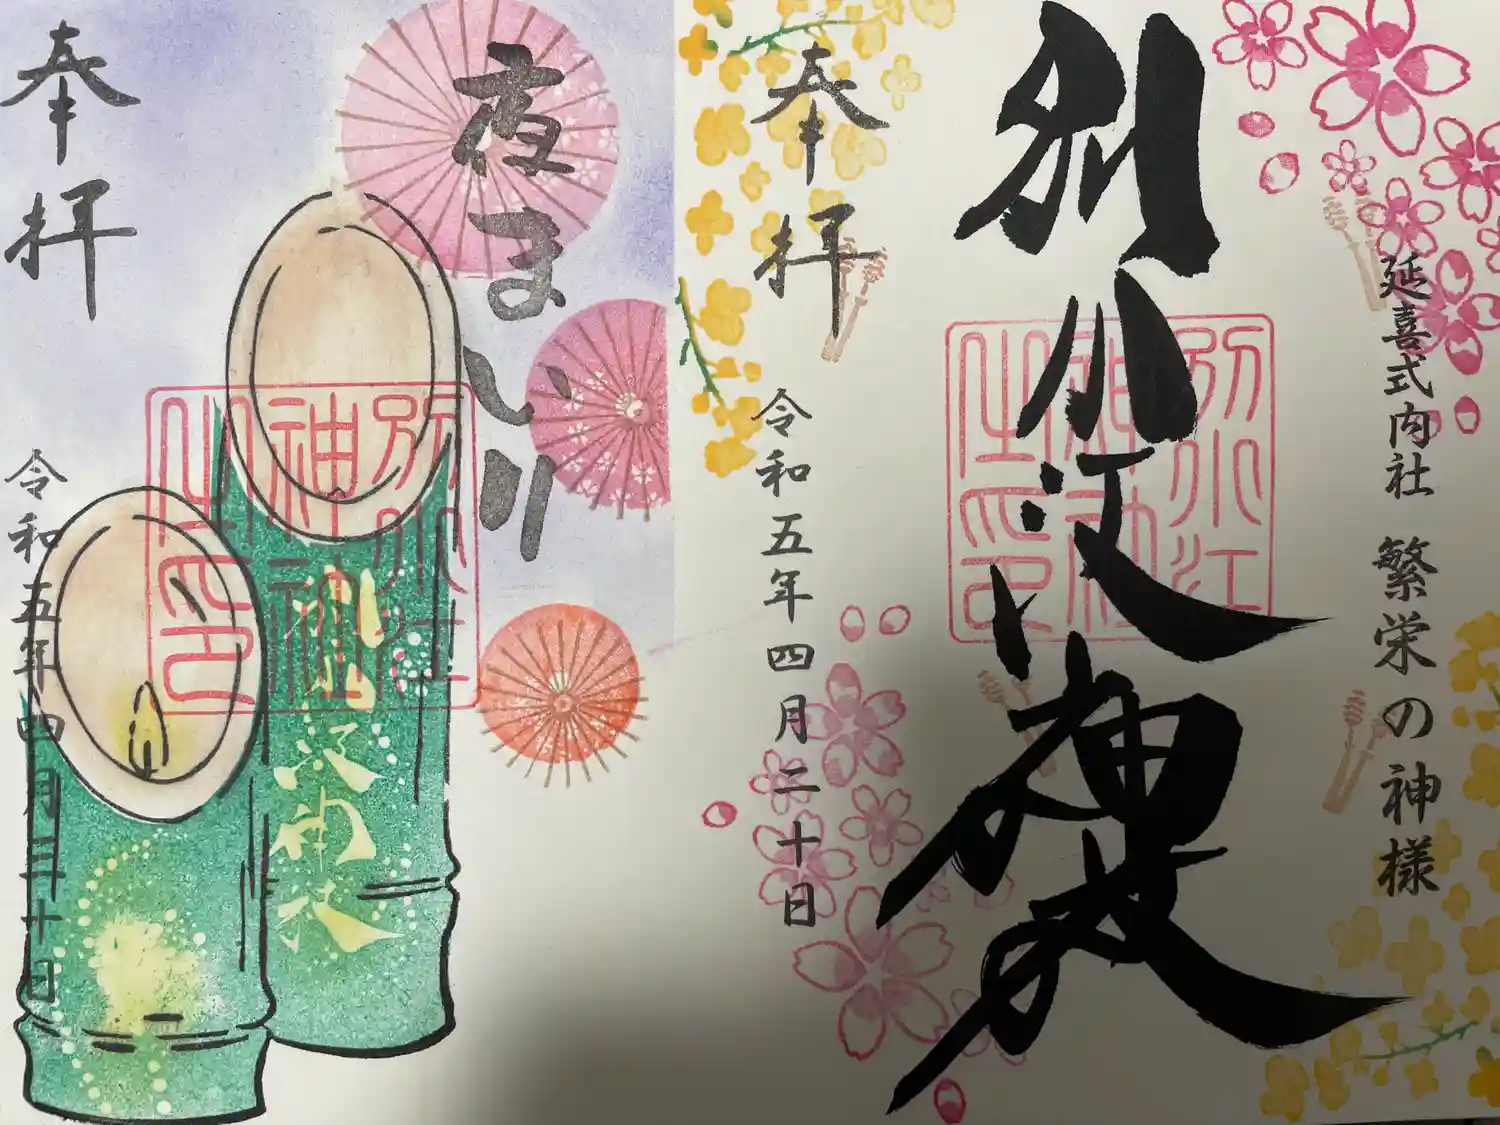 延喜式内社 繁栄の神様
別小江神社
別小江
神社
之印
奉拝
令和五年四月二十日
夜まいり
別小江神社
別小江
神社
之印
奉拝
令和五年四月三十日